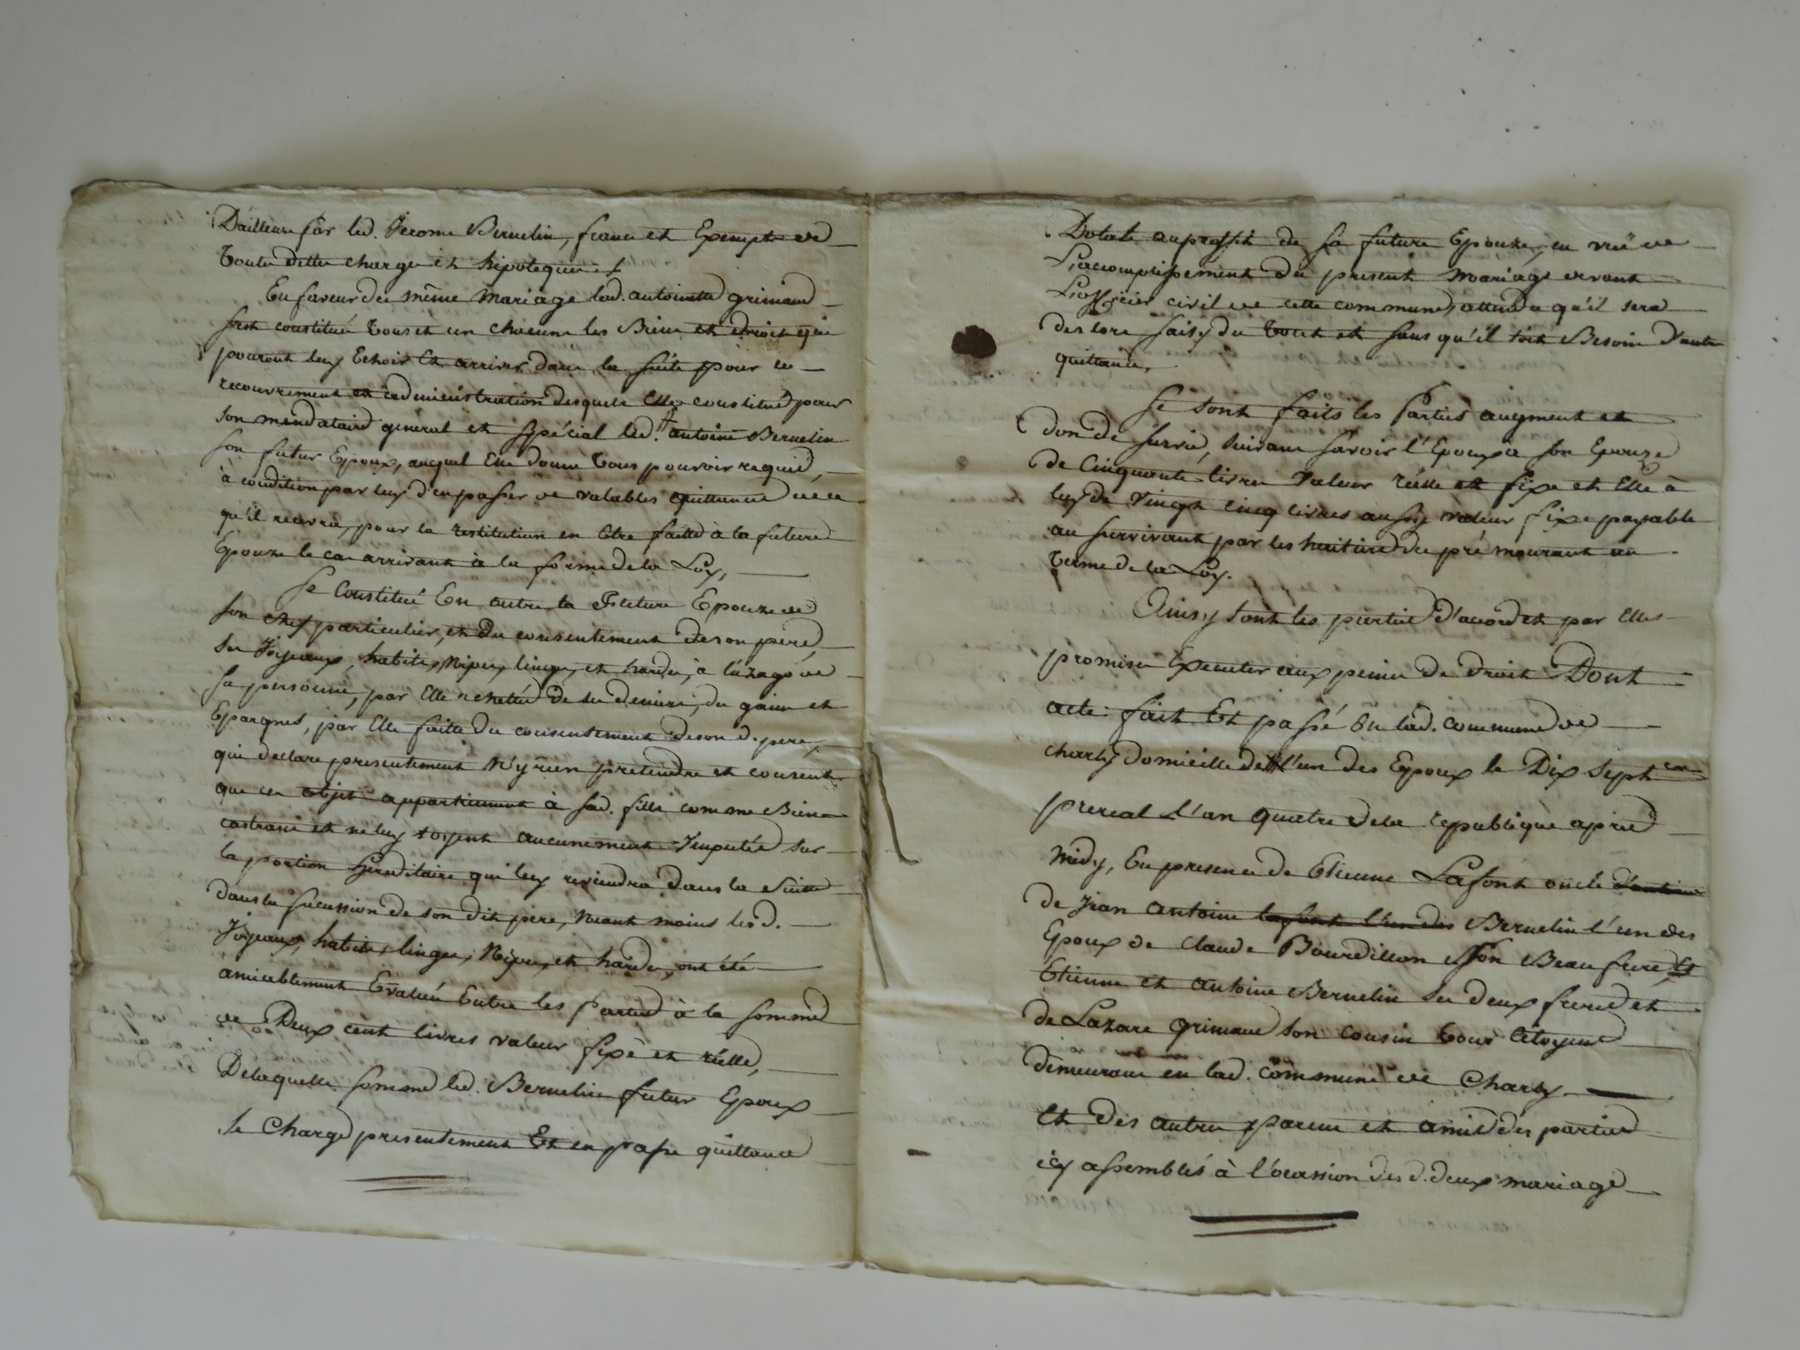 D'ailleurs par led. Jerome Bernelin, franc et Exempte de
toute dette charge et hipoteque./.
En faveur du même mariage lad. antoinette grimaud
sest constitué tous et un chacuns les Biens et droits qui
pouront luy Echoir Et arriver dans la suite pour le
recouvrement et administration desquels Elle constitue pour
son mandataire général et spécial led. antoine Bernelin
son futur Epoux, auquel Elle donne tous pouvoir requis,
à condition par luy d'en passer de valables quittances de ce
qu'il recevra, pour la restitution en Etre faitte à la future
Epouze le cas arrivant à la forme de la Loy,
Se Constitué En outre la Future Epouze de
son chef particulier, et du consentement de son père,
ses Joyeaux, habits, Nipes, linges, et hardes, à l'uzage de
sa personne, par Elle achetté de ses deniers, du gains et
Epargnes, par Elle faitte du consentement de son d. pere,
qui declare presentement N'y rien pretendre et consent
que ces objets appartiennent à sad. fille comme Biens
castrans et ne luy soyent aucunement Imputés sur
la portion heréditaire qui luy reviendra dans la suitte
dans la sucession de son dit père, Neant moins lesd.
Joyeaux, habits, linges, Nipes, et hardes, ont été
amicablement Evalués Entre les parties à la somme
de Deux cent livres valeur fixe et réelle,
De laquelle somme led. Bernelin futur Epoux
se Charge presentement Et en passe quittance
Dotale au proffit de sa future Epouze, en vuë de
L'accomplissement du present mariage devant
L'officier civil de cette commune, attendu qu'il sera
des lors saisy du tout et sans qu'il soit Besoin d'autre
quittance,
Se sont faits les Parties augment et
don de survie, suivant savoir l'Epoux a son Epouze
de Cinquante livres valeur réelle et fixe et Elle à
luy de vingt cinq livres aussy valeur fixe payable
au survivant par les heritiers du pré mourant au
terme de la Loy.
Ainsy sont les parties d'acord et par Elles
promises Executer aux peines de droit Dont
acte fait Et passé En lad. commune de
charly domicille de l'un des Epoux le Dix Sept
prereal L'an quatre de la republique apried
Midy, En presence de Etienne Lafont oncle
de Jean antoine Bernelin l'un des
Epoux de Claude Bourdillon son Beau frere, Et
Etienne et antoine Bernelin ses deux freres et
de Lazare grimaud son cousin tous Citoyens
demeurant en lad. commune de Charly
Et des autres parens et amis des parties
icy assemblés à l'ocassion desd. deux mariage